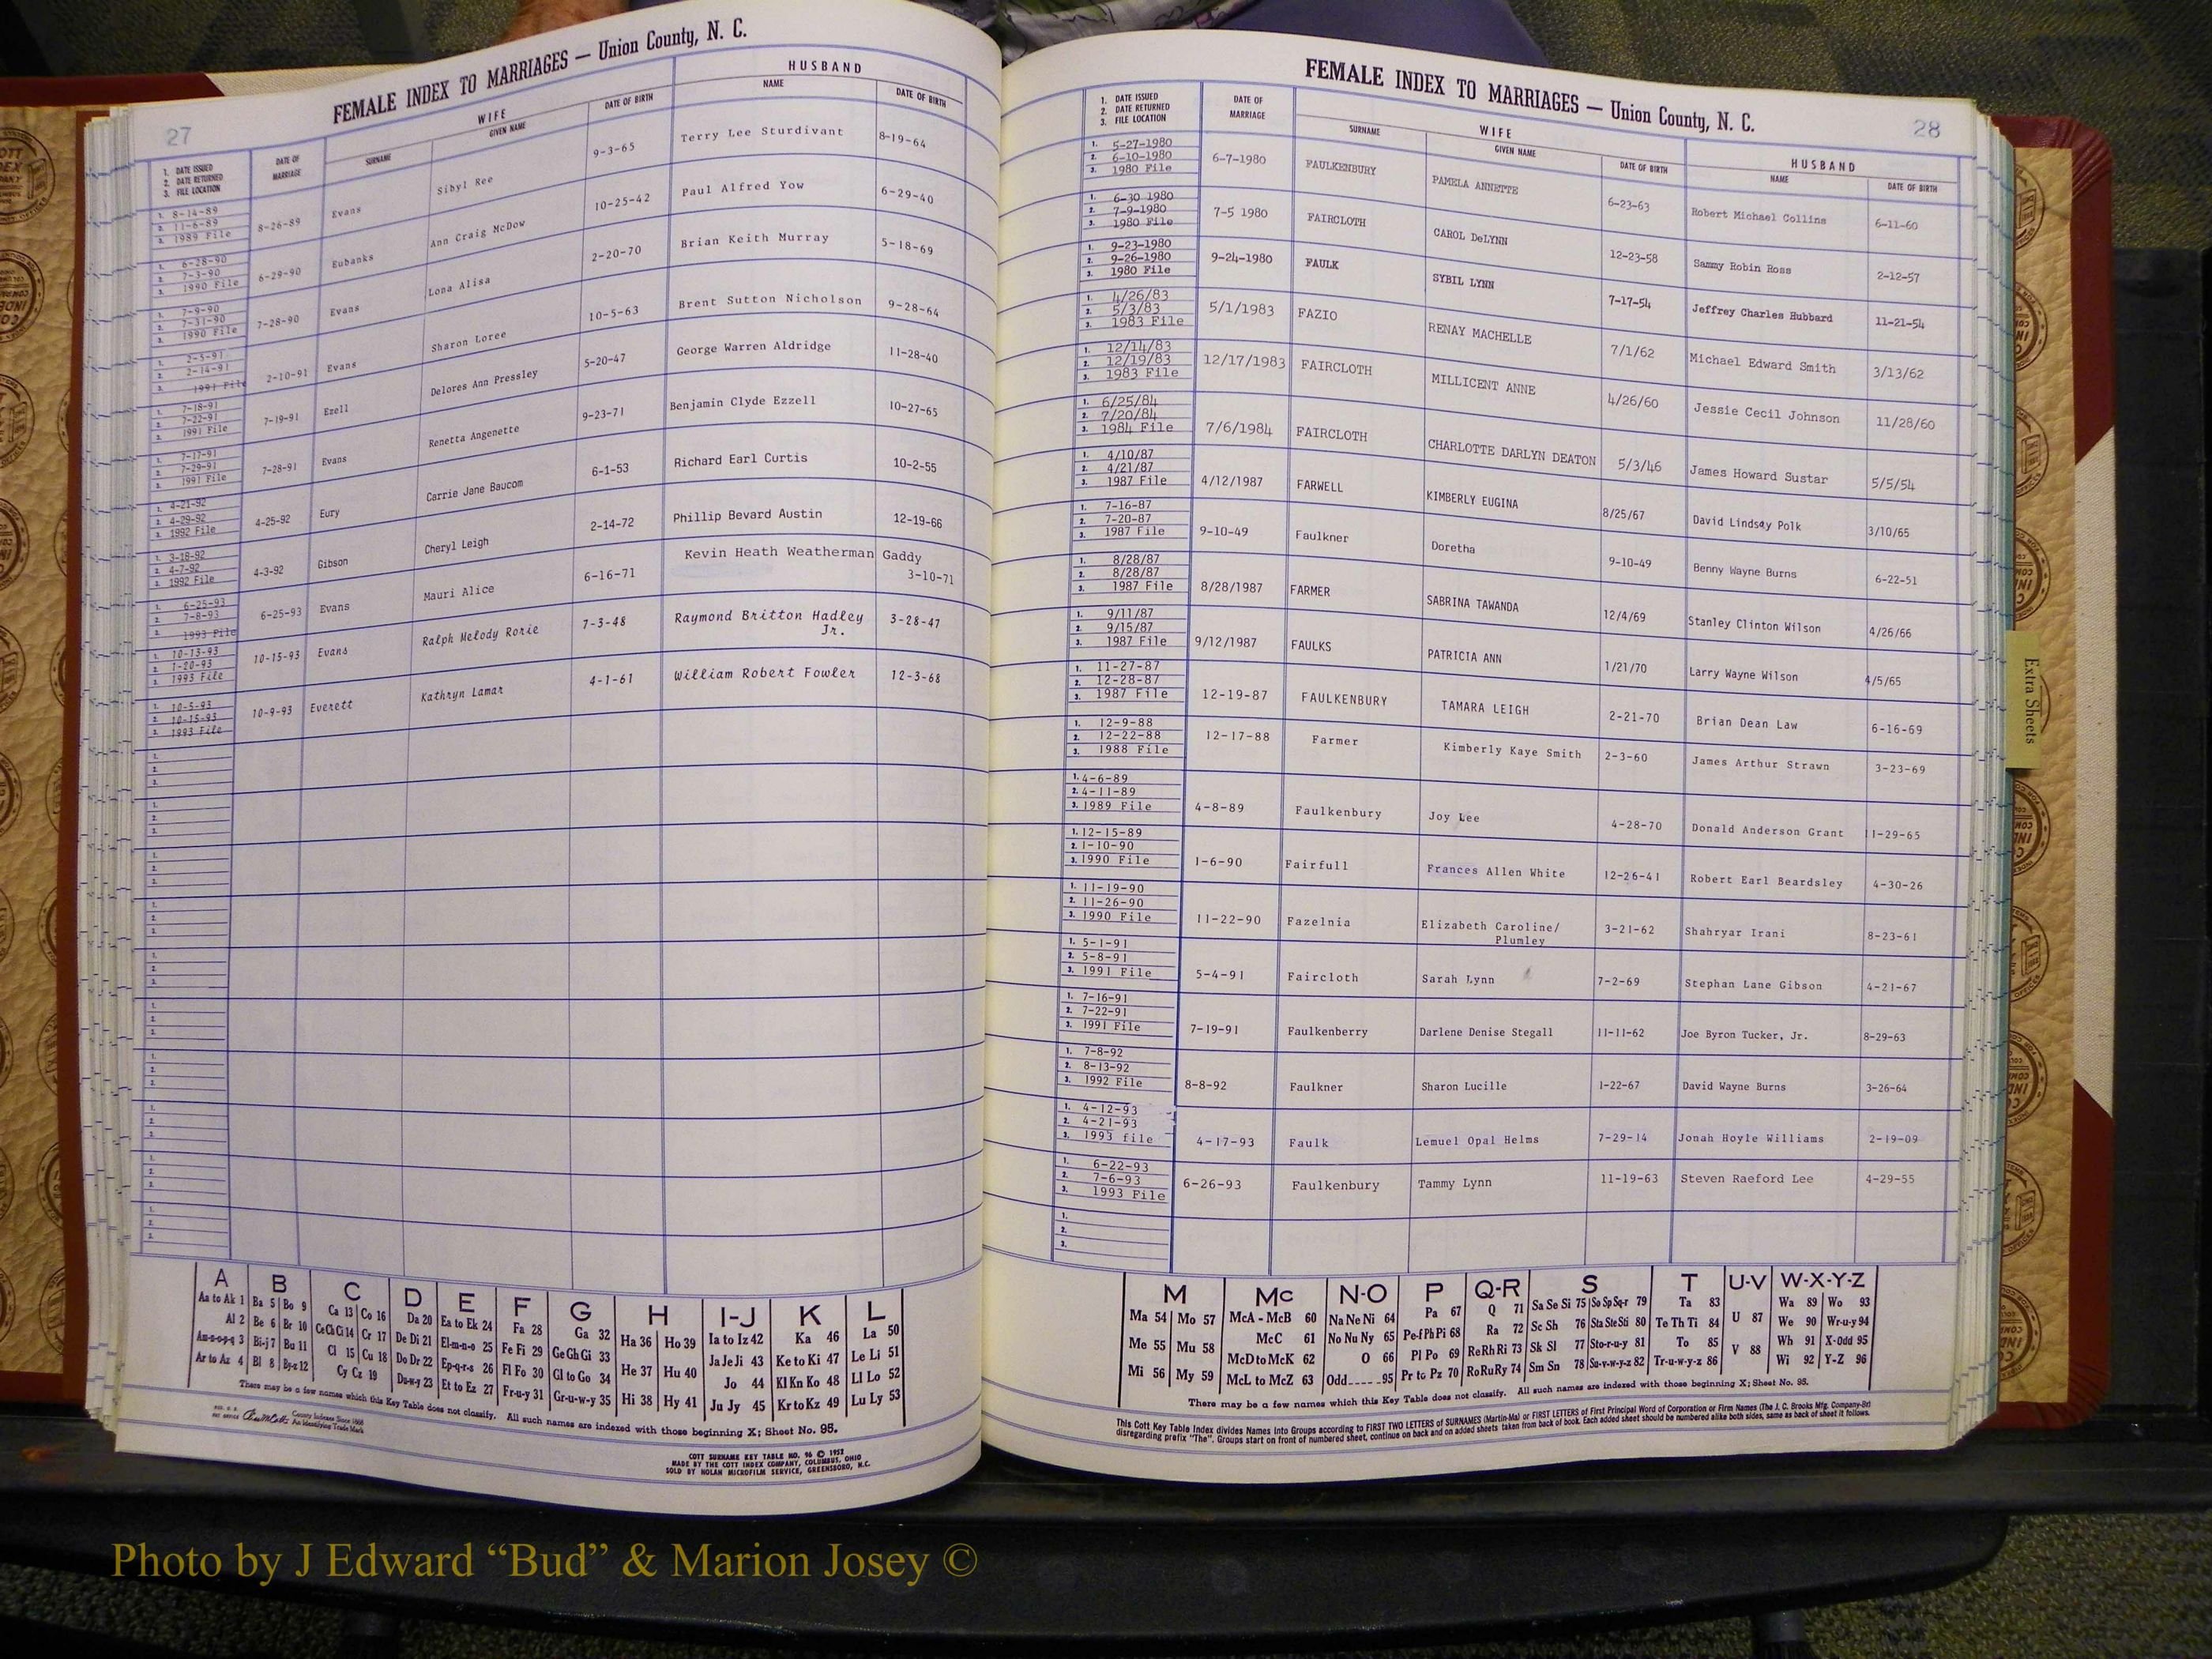 27
FEMALE INDEX TO MARRIAGES — Union County, N. C.
1. DATE ISSUED
2. DATE RETURNED
3. FILE LOCATION
DATE OF MARRIAGE
WIFE
SURNAME
GIVEN NAME
DATE OF BIRTH
HUSBAND
NAME
DATE OF BIRTH
1. 8-14-89
2. 11-6-89
3. 1989 File
8-26-89 Evans Sibyl Ree 9-3-65 Terry Lee Sturdivant 8-19-64
1. 6-28-90
2. 7-3-90
3. 1990 File
6-29-90 Eubanks Ann Craig McDow 10-25-42 Paul Alfred Yow 6-29-40
1. 7-9-90
2. 7-31-90
3. 1990 File
7-28-90 Evans Lona Alisa 2-20-70 Brian Keith Murray 5-18-69
1. 2-5-91
2. 2-14-91
3. 1991 File
2-10-91 Evans Sharon Loree 10-5-63 Brent Sutton Nicholson 9-28-64
1. 7-18-91
2. 7-22-91
3. 1991 File
7-19-91 Ezell Delores Ann Pressley 5-20-47 George Warren Aldridge 11-28-40
1. 7-17-91
2. 7-29-91
3. 1991 File
7-28-91 Evans Renetta Angenette 9-23-71 Benjamin Clyde Ezzell 10-27-65
1. 4-21-92
2. 4-29-92
3. 1992 File
4-25-92 Eury Carrie Jane Baucom 6-1-53 Richard Earl Curtis 10-2-55
1. 3-18-92
2. 4-7-92
3. 1992 File
4-3-92 Gibson Cheryl Leigh 2-14-72 Phillip Bevard Austin 12-19-66
1. 6-25-93
2. 7-8-93
3. 1993 File
6-25-93 Evans Mauri Alice 6-16-71 Kevin Heath Weatherman Gaddy
3-10-71
1. 10-13-93
2. 1-20-93
3. 1993 File
10-15-93 Evans Ralph Melody Rorie 7-3-48 Raymond Britton Hadley
Jr. 3-28-47
1. 10-5-93
2. 10-15-93
3. 1993 File
10-9-93 Everett Kathryn Lamar 4-1-61 William Robert Fowler 12-3-68
A B C D E F G H I-J K L
Aa to Ak 1 Ba 5 Bo 9 Ca 13 Co 16 Da 20 Ea to Ek 24 Fa 28 Ga 32 Ha 36 Ho 39 Ia to Iz 42 Ka 46 La 50
Al 2 Be 6 Br 10 Ce Ch Ci 14 Cr 17 De Di 21 El-m-n-o 25 Fe Fi 29 Ge Gh Gi 33 He 37 Hu 40 Ja Je Ji 43 Ke to Ki 47 Le Li 51
Am-n-o-p-q 3 Bi-j 7 Bu 11 Cl 15 Cu 18 Do Dr 22 Ep-q-r-s 26 Fl Fo 30 Gl to Go 34 Hi 38 Hy 41 Jo 44 Kl Kn Ko 48 Ll Lo 52
Ar to Az 4 Bl 8 By-z 12 Cy Cz 19 Du-w-y 23 Et to Ez 27 Fr-u-y 31 Gr-u-w-y 35 Ju Jy 45 Kr to Kz 49 Lu Ly 53
There may be a few names which this Key Table does not classify. All such names are indexed with those beginning X; Sheet No. 95.
County Indexes Since 1888
An Identifying Trade Mark
COTT SURNAME KEY TABLE NO. 96 © 1952
MADE BY THE COTT INDEX COMPANY, COLUMBUS, OHIO
SOLD BY NOLAN MICROFILM SERVICE, GREENSBORO, N.C.
28
FEMALE INDEX TO MARRIAGES — Union County, N. C.
1. DATE ISSUED
2. DATE RETURNED
3. FILE LOCATION
DATE OF MARRIAGE
WIFE
SURNAME
GIVEN NAME
DATE OF BIRTH
HUSBAND
NAME
DATE OF BIRTH
1. 5-27-1980
2. 6-10-1980
3. 1980 File
6-7-1980 FAULKENBURY PAMELA ANNETTE 6-23-63 Robert Michael Collins 6-11-60
1. 6-30 1980
2. 7-9-1980
3. 1980 File
7-5 1980 FAIRCLOTH CAROL DeLYNN 12-23-58 Sammy Robin Ross 2-12-57
1. 9-23-1980
2. 9-26-1980
3. 1980 File
9-24-1980 FAULK SYBIL LYNN 7-17-54 Jeffrey Charles Hubbard 11-21-54
1. 4/26/83
2. 5/3/83
3. 1983 File
5/1/1983 FAZIO RENAY MACHELLE 7/1/62 Michael Edward Smith 3/13/62
1. 12/14/83
2. 12/19/83
3. 1983 File
12/17/1983 FAIRCLOTH MILLICENT ANNE 4/26/60 Jessie Cecil Johnson 11/28/60
1. 6/25/84
2. 7/20/84
3. 1984 File
7/6/1984 FAIRCLOTH CHARLOTTE DARLYN DEATON 5/3/46 James Howard Sustar 5/5/54
1. 4/10/87
2. 4/21/87
3. 1987 File
4/12/1987 FARWELL KIMBERLY EUGINA 8/25/67 David Lindsay Polk 3/10/65
1. 7-16-87
2. 7-20-87
3. 1987 File
9-10-49 Faulkner Doretha 9-10-49 Benny Wayne Burns 6-22-51
1. 8/28/87
2. 8/28/87
3. 1987 File
8/28/1987 FARMER SABRINA TAWANDA 12/4/69 Stanley Clinton Wilson 4/26/66
1. 9/11/87
2. 9/15/87
3. 1987 File
9/12/1987 FAULKS PATRICIA ANN 1/21/70 Larry Wayne Wilson 4/5/65
1. 11-27-87
2. 12-28-87
3. 1987 File
12-19-87 FAULKENBURY TAMARA LEIGH 2-21-70 Brian Dean Law 6-16-69
1. 12-9-88
2. 12-22-88
3. 1988 File
12-17-88 Farmer Kimberly Kaye Smith 2-3-60 James Arthur Strawn 3-23-69
1. 4-6-89
2. 4-11-89
3. 1989 File
4-8-89 Faulkenbury Joy Lee 4-28-70 Donald Anderson Grant 11-29-65
1. 12-15-89
2. 1-10-90
3. 1990 File
1-6-90 Fairfull Frances Allen White 12-26-41 Robert Earl Beardsley 4-30-26
1. 11-19-90
2. 11-26-90
3. 1990 File
11-22-90 Fazelnia Elizabeth Caroline/
Plumley 3-21-62 Shahryar Irani 8-23-61
1. 5-1-91
2. 5-8-91
3. 1991 File
5-4-91 Faircloth Sarah Lynn 7-2-69 Stephan Lane Gibson 4-21-67
1. 7-16-91
2. 7-22-91
3. 1991 File
7-19-91 Faulkenberry Darlene Denise Stegall 11-11-62 Joe Byron Tucker, Jr. 8-29-63
1. 7-8-92
2. 8-13-92
3. 1992 File
8-8-92 Faulkner Sharon Lucille 1-22-67 David Wayne Burns 3-26-64
1. 4-12-93
2. 4-21-93
3. 1993 file
4-17-93 Faulk Lemuel Opal Helms 7-29-14 Jonah Hoyle Williams 2-19-09
1. 6-22-93
2. 7-6-93
3. 1993 File
6-26-93 Faulkenbury Tammy Lynn 11-19-63 Steven Raeford Lee 4-29-55
1.
2.
3.
M Mc N-O P Q-R S T U-V W-X-Y-Z
Ma 54 Mo 57 McA - McB 60 Na Ne Ni 64 Pa 67 Q 71 Sa Se Si 75 So Sp Sq-r 79 Ta 83 U 87 Wa 89 Wo 93
Me 55 Mu 58 McC 61 No Nu Ny 65 Pe-f Ph Pi 68 Ra 72 Sc Sh 76 Sta Ste Sti 80 Te Th Ti 84 V 88 We 90 Wr-u-y 94
Mi 56 My 59 McD to McK 62 O 66 Pl Po 69 Re Rh Ri 73 Sk Sl 77 Sto-r-u-y 81 To 85 Wh 91 X-Odd 95
McL to McZ 63 Odd 95 Pr to Pz 70 Ro Ru Ry 74 Sm Sn 78 Su-v-w-y-z 82 Tr-u-w-y-z 86 Wi 92 Y-Z 96
There may be a few names which this Key Table does not classify. All such names are indexed with those beginning X; Sheet No. 95.
This Cott Key Table Index divides Names Into Groups according to FIRST TWO LETTERS of SURNAMES (Martin-Ma) or FIRST LETTERS of First Principal Word of Corporation or Firm Names (The J. C. Brooks Mfg. Company-Br)
disregarding prefix "The". Groups start on front of numbered sheet, continue on back and on added sheets taken from back of book. Each added sheet should be numbered alike both sides, same as back of sheet it follows.
Extra Sheets
Photo by J Edward “Bud” & Marion Josey ©